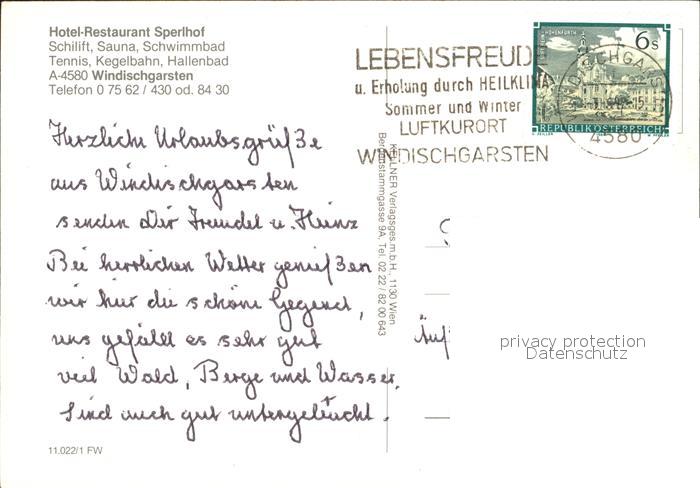 Hotel-Restaurant Sperlhof
Schilift, Sauna, Schwimmbad
Tennis, Kegelbahn, Hallenbad
A-4580 Windischgarsten
Telefon 0 75 62 / 430 od. 84 30
LEBENSFREUD
u. Erholung durch HEILKLIMA
Sommer und Winter
LUFTKURORT
WINDISCHGARSTEN
6s
REPUBLIK ÖSTERREICH
WINDISCHGARST
4580
Herzliche Urlaubsgrüße
aus Windischgarsten
senden Dir Freudel u. Heinz
Bei herrlichen Wetter genießen
wir hier die schöne Gegend,
uns gefällt es sehr gut
viel Wald, Berge und Wasser.
Sind auch gut untergebracht.
KELLNER Verlagsges.m.b.H., 1130 Wien
Bergenstammgasse 9A, Tel. 02 22 / 82 00 643
privacy protection
Datenschutz
11.022/1 FW